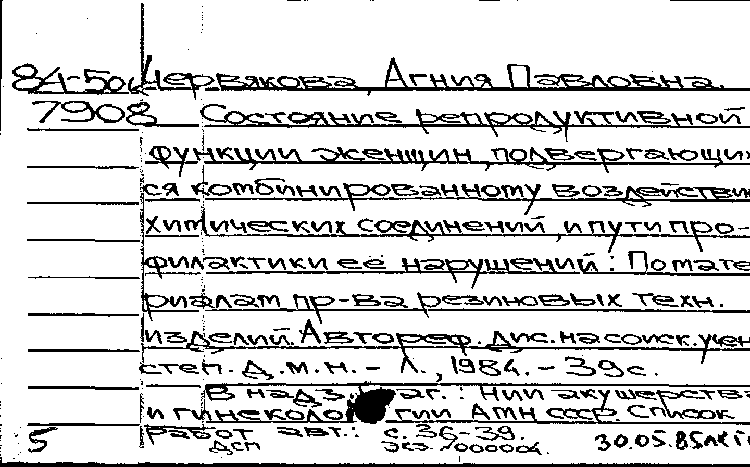 84-50 Червякова, Агния Павловна.
7908 Состояние репродуктивной
функции женщин, подвергающих
ся комбинированному воздействи
химических соединений, и пути про-
филактики её нарушений: По мате
риалам пр-ва резиновых техн.
изделий. Автореф. дис. на соиск. учен
степ. д.м.н. - Л., 1984. - 39 с.
В надзаг.: НИИ акушерства
и гинекологии АМН СССР. Список
5 работ авт.: с. 36-39. 30.05.85
ДСП Экз. №000004.